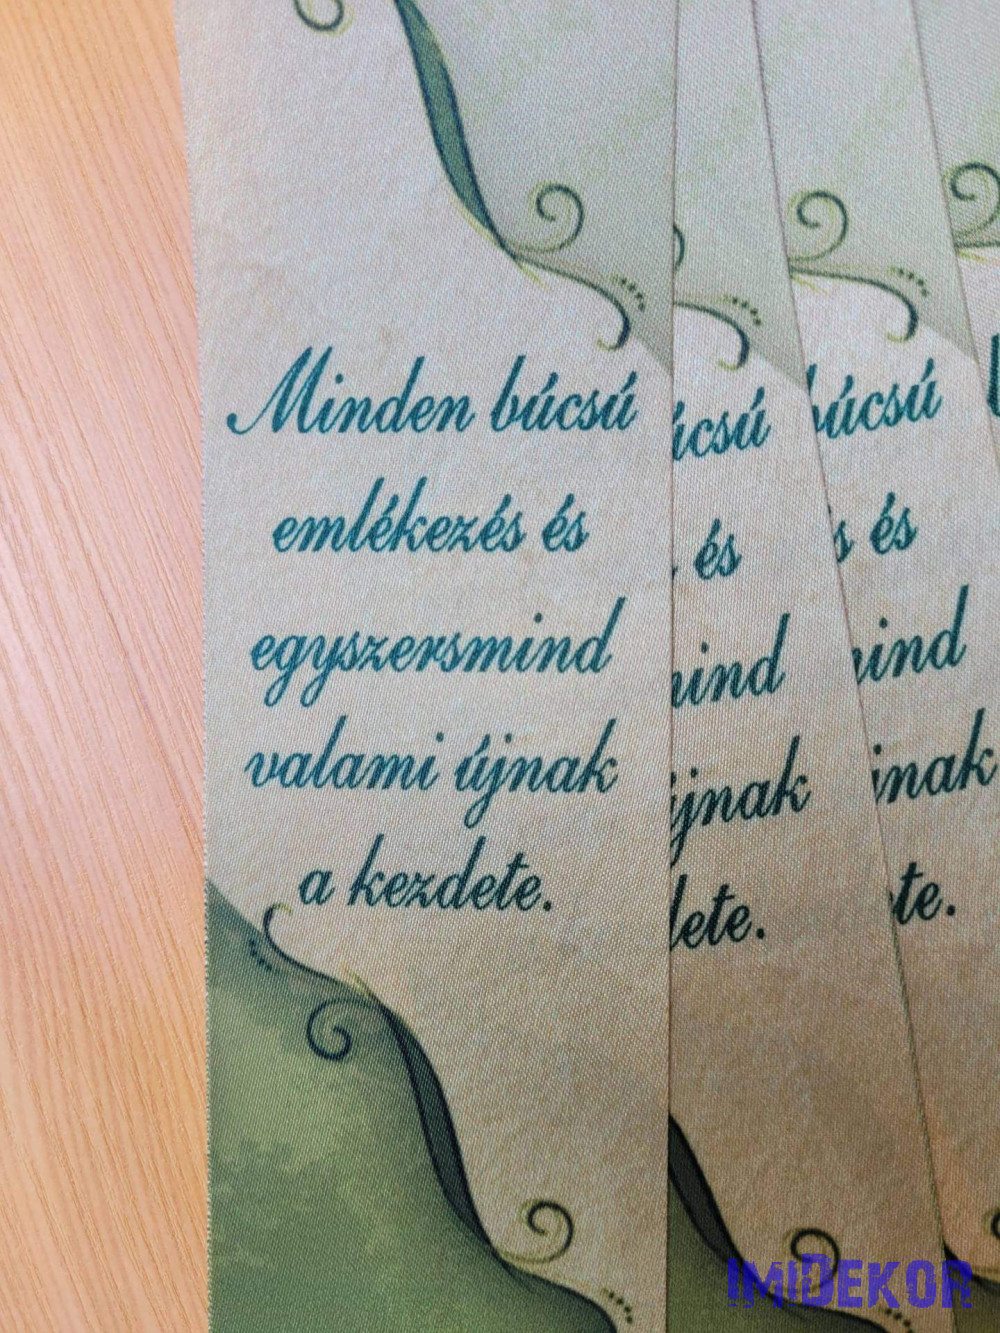 Minden búcsú
emlékezés és
egyszersmind
valami újnak
a kezdete.
úcsú
és
ind
újnak
dete.
búcsú
s és
ind
jnak
te.
IMIDEKOR